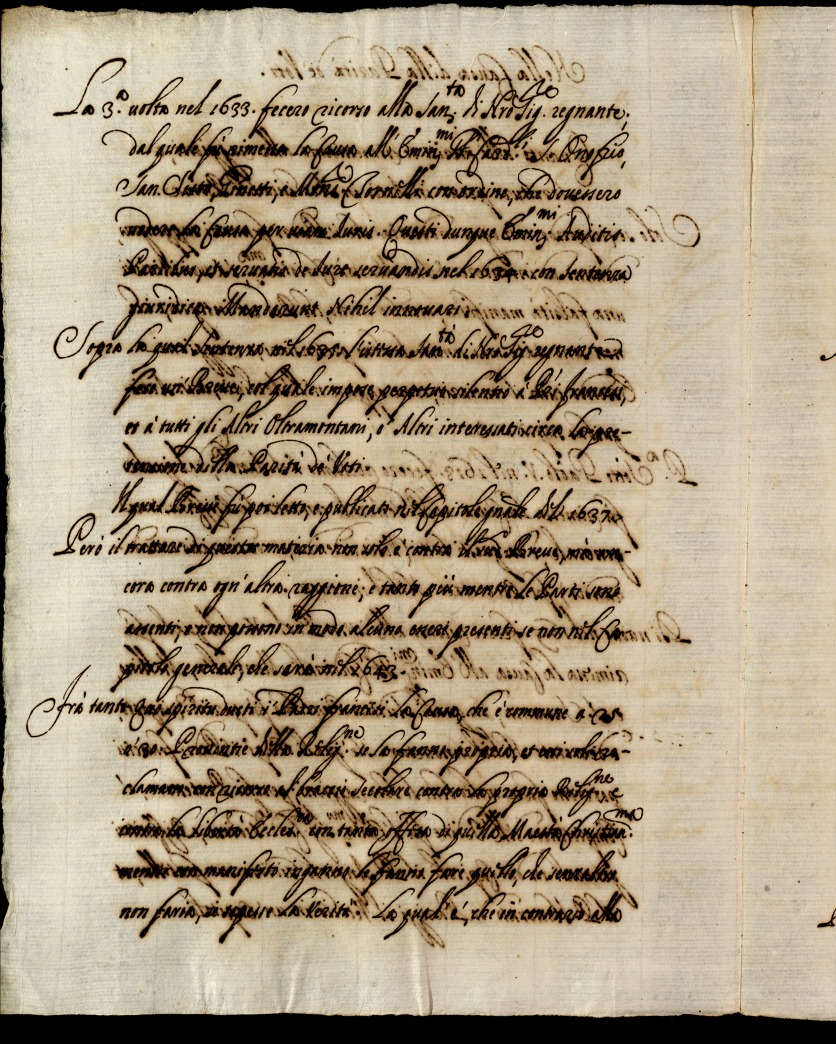 La 3.ª uolta nel 1633. fecero ricorso alla San.tà di Nro Sig.re regnante,
dal quale fù rimessa la Causa all' Emin.mi SS.ri Card.li S. Onofrio,
San Sisto, Ginetti, e Mons.r Tornelli con ordine, che douessero
uedere la Causa per uiam Iuris. Questi dunque Emin.mi Auditis
Partibus, et seruatis de Iure seruandis nel 1634 con sentenza
giuridica Mandarunt Nihil innouari
Sopra la qual sentenza nel 1635 l'istessa San.tà di Nro Sig.re regnante
fece un Breue, col quale impose perpetuo silentio à Pri francesi,
et à tutti gli Altri Oltramontani, e Altri interessati circa la pre-
tensione della Parità de' Voti
Il qual Breue fù poi letto, e publicato nel Capitolo gnãle del 1637.
Però il trattare di questa materia non solo è contra il Breue, mà an-
cora contra ogn' altra raggione; e tanto più mentre le Parti sono
assenti, e non ponno in modo alcuno esser presenti se non nel Ca-
pitolo generale, che sarà nel 1643.
Frà tanto spirito i Padri francesi la Causa, che è commune a
ò 30 Prouintie della Relig.ne se la fanno propria, et
clamano con ricorso al braccio secolare contro la propria Relig.ne e
contro la libertà Eccles.ca con tanta offesa di quella Maestà Christian.ma
mentre con manifesto inganno le fanno fare quello, che senz'altro
non faria, se sapesse la Verità. La qual' è, che in contrario alla